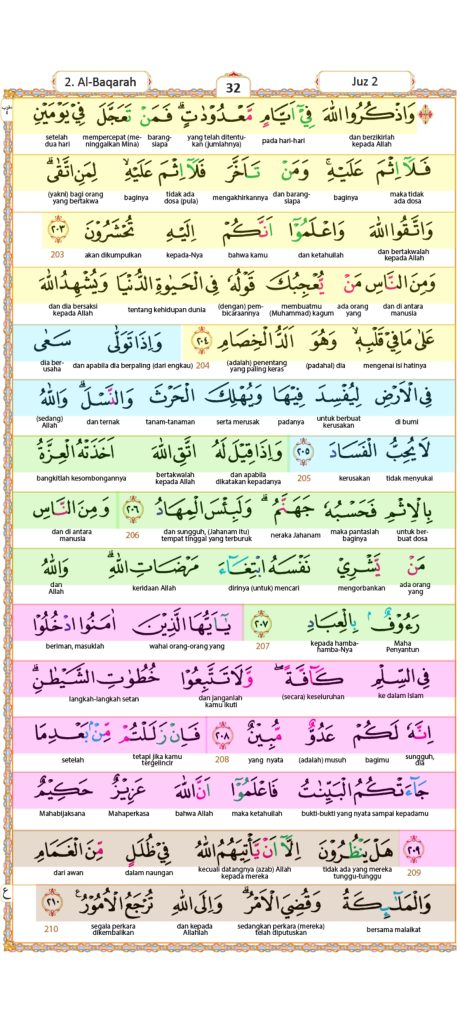 2. Al-Baqarah
32
Juz 2
وَاذْكُرُوا اللّٰهَ فِيْٓ اَيَّامٍ مَّعْدُوْدٰتٍۗ فَمَنْ تَعَجَّلَ فِيْ يَوْمَيْنِ
dan berzikirlah kepada Allah pada hari-hari yang telah ditentukan (jumlahnya) barangsiapa mempercepat (meninggalkan Mina) setelah dua hari
فَلَآ اِثْمَ عَلَيْهِۚ وَمَنْ تَاَخَّرَ فَلَآ اِثْمَ عَلَيْهِۙ لِمَنِ اتَّقٰىۗ
maka tidak ada dosa baginya dan barangsiapa mengakhirkannya tidak ada dosa (pula) baginya (yakni) bagi orang yang bertakwa
وَاتَّقُوا اللّٰهَ وَاعْلَمُوْٓا اَنَّكُمْ اِلَيْهِ تُحْشَرُوْنَ ٢٠٣
dan bertakwalah kepada Allah dan ketahullah bahwa kamu kepada-Nya akan dikumpulkan 203
وَمِنَ النَّاسِ مَنْ يُّعْجِبُكَ قَوْلُهٗ فِى الْحَيٰوةِ الدُّنْيَا وَيُشْهِدُ اللّٰهَ
dan di antara manusia ada orang yang membuatmu (Muhammad) kagum (dengan) pembicaraannya tentang kehidupan dunia dan dia bersaksi kepada Allah
عَلٰى مَا فِيْ قَلْبِهٖۙ وَهُوَ اَلَدُّ الْخِصَامِ ٢٠٤ وَاِذَا تَوَلّٰى سَعٰى
mengenai isi hatinya (padahal) dia (adalah) penentang yang paling keras 204 dan apabila dia berpaling (dari engkau) dia berusaha
فِى الْاَرْضِ لِيُفْسِدَ فِيْهَا وَيُهْلِكَ الْحَرْثَ وَالنَّسْلَۗ وَاللّٰهُ
di bumi untuk berbuat kerusakan padanya serta merusak tanam-tanaman dan ternak (sedang) Allah
لَا يُحِبُّ الْفَسَادَ ٢٠٥ وَاِذَا قِيْلَ لَهُ اتَّقِ اللّٰهَ اَخَذَتْهُ الْعِزَّةُ
tidak menyukai kerusakan 205 dan apabila dikatakan kepadanya bertakwalah kepada Allah bangkitlah kesombongannya
بِالْاِثْمِ فَحَسْبُهٗ جَهَنَّمُۗ وَلَبِئْسَ الْمِهَادُ ٢٠٦ وَمِنَ النَّاسِ
untuk berbuat dosa maka pantaslah baginya neraka Jahanam dan sungguh, (Jahanam itu) tempat tinggal yang terburuk 206 dan di antara manusia
مَنْ يَّشْرِيْ نَفْسَهُ ابْتِغَاۤءَ مَرْضَاتِ اللّٰهِۗ وَاللّٰهُ
ada orang yang mengorbankan dirinya (untuk) mencari keridaan Allah dan Allah
رَءُوْفٌۢ بِالْعِبَادِ ٢٠٧ يٰٓاَيُّهَا الَّذِيْنَ اٰمَنُوا ادْخُلُوْا
Maha Penyantun kepada hamba-hamba-Nya 207 wahai orang-orang yang beriman, masuklah
فِى السِّلْمِ كَاۤفَّةًۖ وَلَا تَتَّبِعُوْا خُطُوٰتِ الشَّيْطٰنِۗ
ke dalam Islam (secara) keseluruhan dan janganlah kamu ikuti langkah-langkah setan
اِنَّهٗ لَكُمْ عَدُوٌّ مُّبِيْنٌ ٢٠٨ فَاِنْ زَلَلْتُمْ مِّنْۢ بَعْدِ مَا
sungguh, dia bagimu (adalah) musuh yang nyata 208 tetapi jika kamu tergelincir setelah
جَاۤءَتْكُمُ الْبَيِّنٰتُ فَاعْلَمُوْٓا اَنَّ اللّٰهَ عَزِيْزٌ حَكِيْمٌ
bukti-bukti yang nyata sampai kepadamu maka ketahullah bahwa Allah Mahaperkasa Mahabijaksana
٢٠٩ هَلْ يَنْظُرُوْنَ اِلَّآ اَنْ يَّأْتِيَهُمُ اللّٰهُ فِيْ ظُلَلٍ مِّنَ الْغَمَامِ
209 tidak ada yang mereka tunggu-tunggu kecuali datangnya (azab) Allah kepada mereka dalam naungan dari awan
وَالْمَلٰۤىِٕكَةُ وَقُضِيَ الْاَمْرُۗ وَاِلَى اللّٰهِ تُرْجَعُ الْاُمُوْرُ ٢١٠
bersama malaikat sedangkan perkara (mereka) telah diputuskan dan kepada Allahlah segala perkara dikembalikan 210
ع